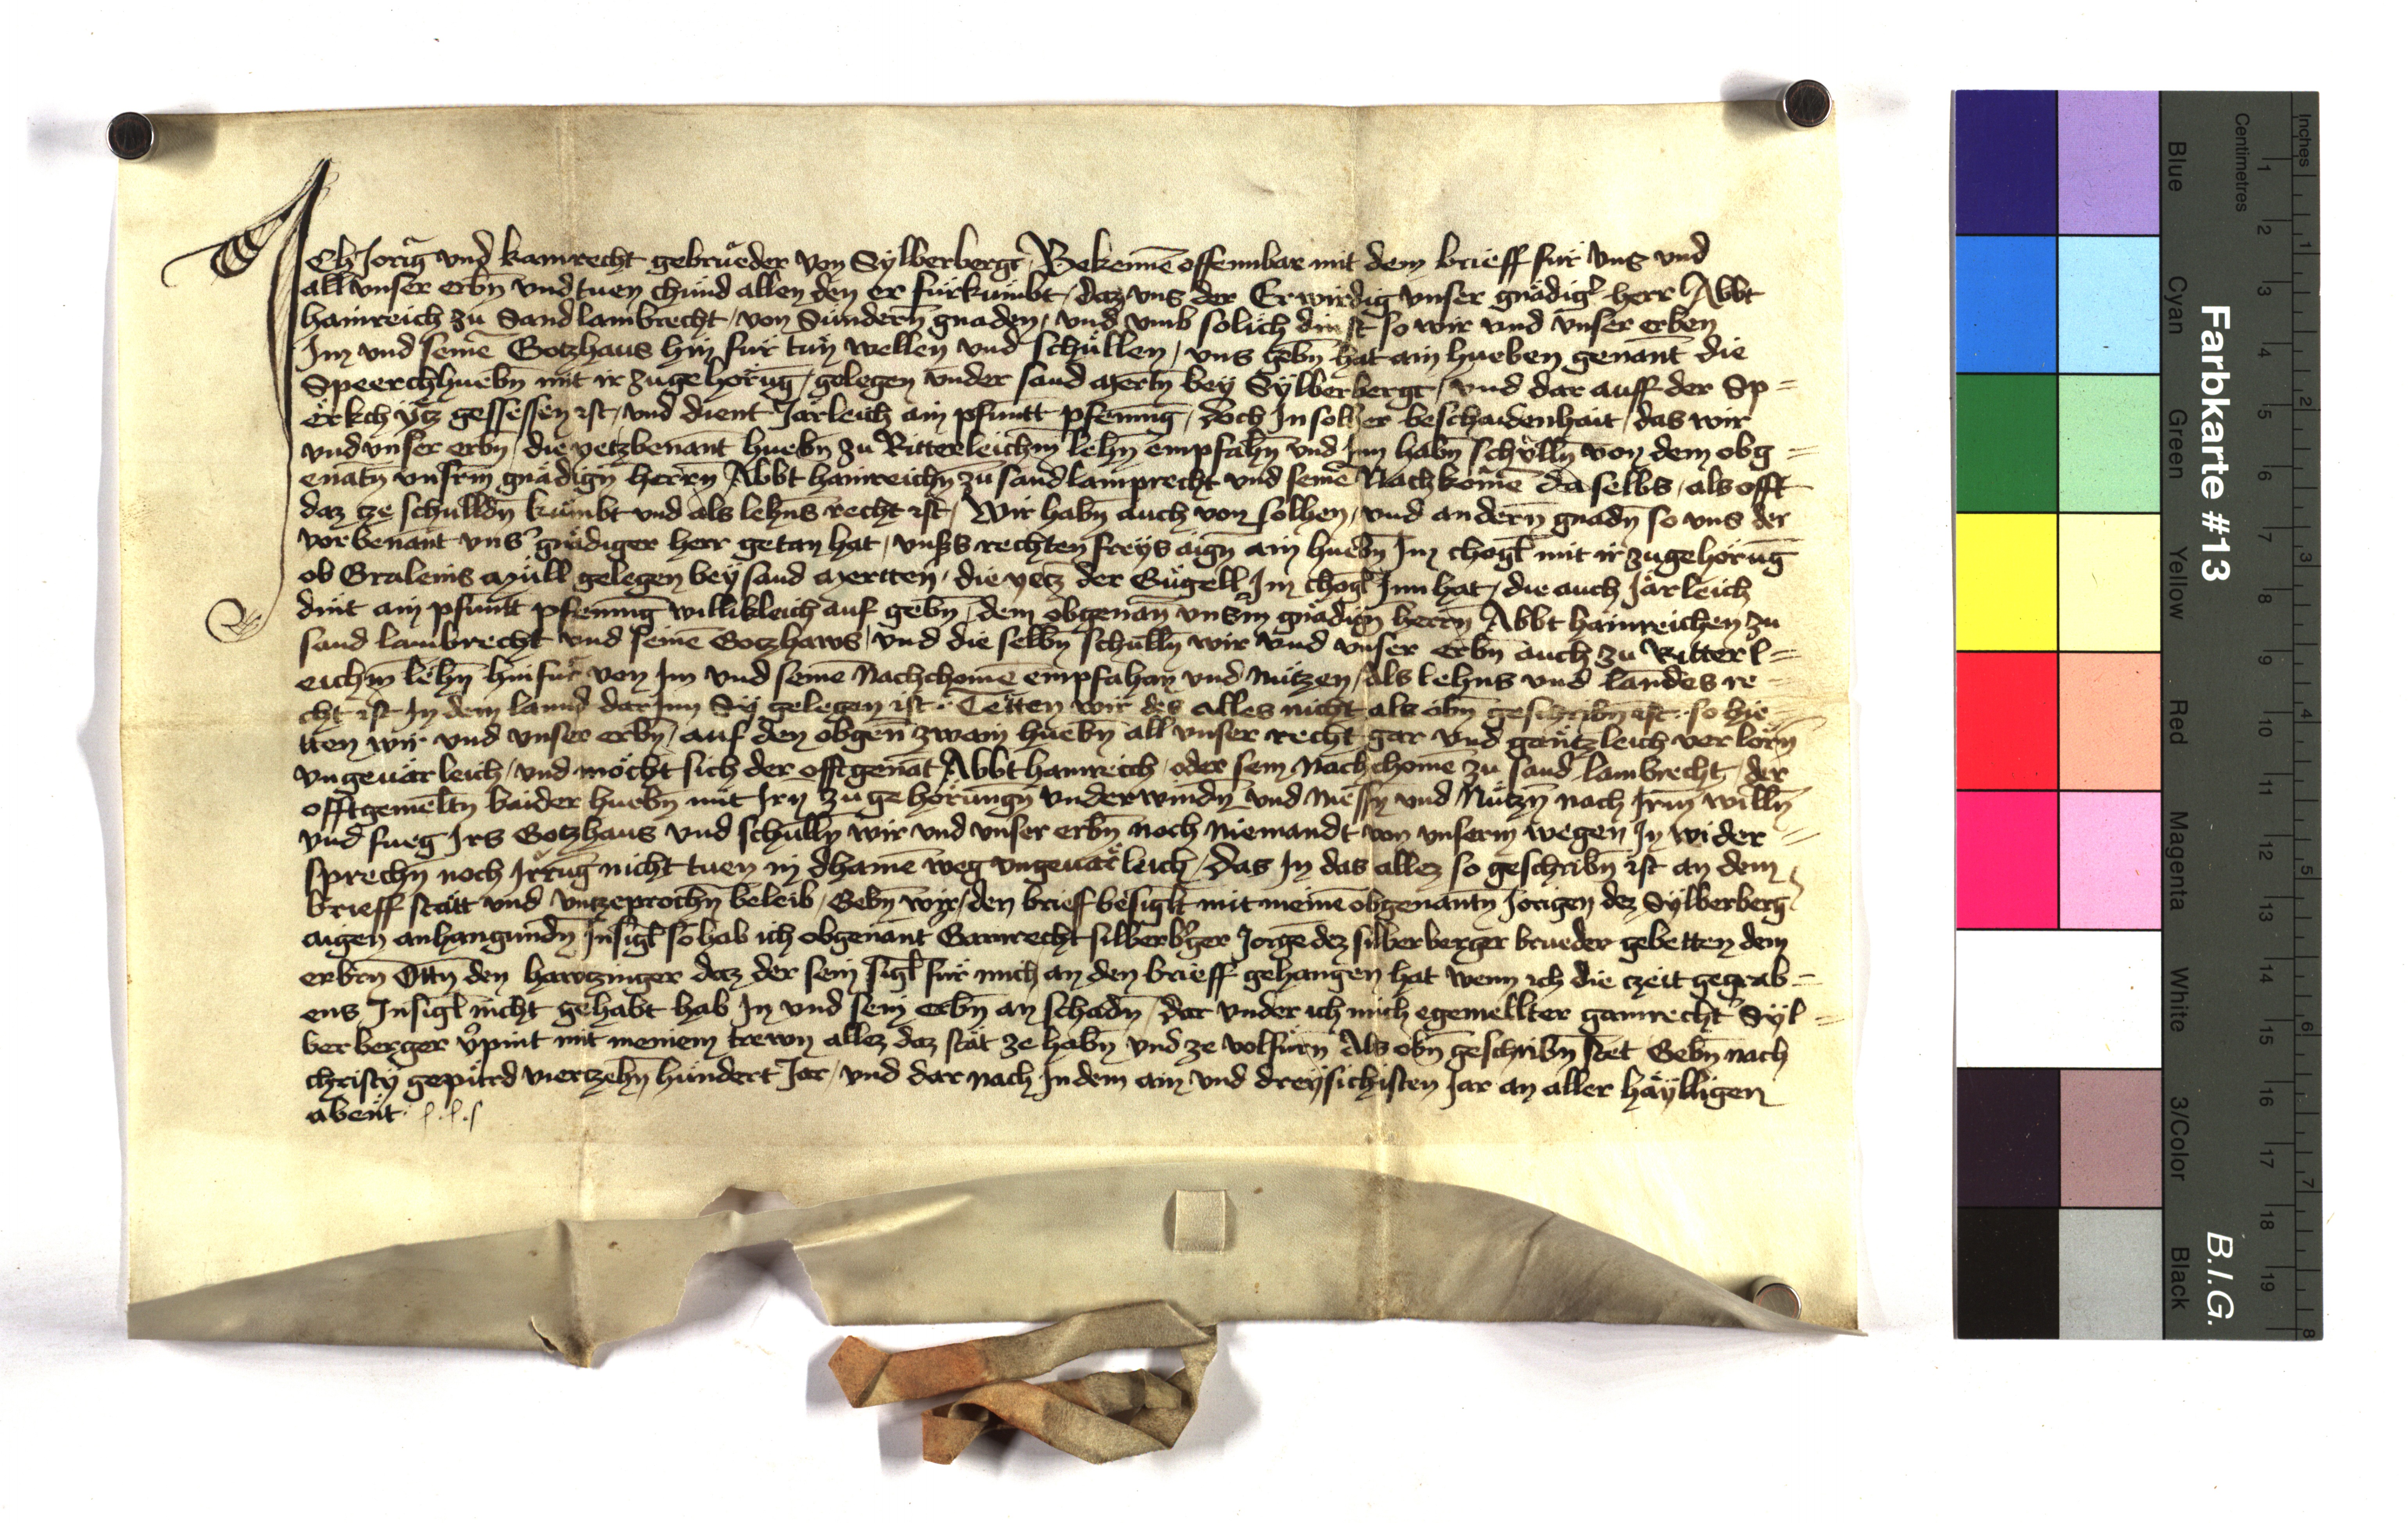 Ich Jorig und kamrecht gebrueder von Sylberberg Bekennē offennbar mit dem brieff für uns und
all unser erbn̄ und tuen chund allen den er fürkumbt / daz uns der Erwirdig unser gnädigʾ herr Abbt
hainreich zu Sand lambrecht / von Sundern̄ gnaden / und umb solich dinst so wir und unser erben
Im und seinē Gotzhaus hin für tun wellen und schüllen / uns gebn̄ hat ain hueben genant die
Speerchhuebn̄ mit ir zugehörūg / gelegen under sand mertn̄ bey Sylberberg / und dar auff der Sp=
erkch ytz gessessen ist / und dient Järleich ain pfuntt pfennig / doch In solher beschaidenhait / das wir
und unser erbn̄ / die yetzbenant huebn̄ zu Ritterleichm̄ lehn̄ empfahn̄ und Inn habn̄ schülln̄ von dem obg=
enātn̄ unsrm̄ gnädign̄ herrn̄ Abbt hainreichn̄ zu sand lamprecht und seinē Nachkomē daselbs / als offt
daz cze schulldn̄ kumbt und als lehns recht ist / Wir habn̄ auch von solhen / und andern̄ gnadn̄ so uns der
vorbenant unsʾ gnädiger herr getan hat / unsʾs rechten freys aign̄ ain huebn̄ Im chogl mit ir zugehörūg
ob Gralenis müll gelegen bey sand mertten / die yetz der Gugell Im chogl Inn hat / die auch Järleich
dint ain pfuntt pfennig willikleich auf gebn̄ / dem obgenan̄ unsʾm gnädign̄ herrn̄ Abbt hainreichen zu
sand lambrecht und seinē Gotzhaws / und die selbn̄ schülln̄ wir und unser erbn̄ auch zu Ritterl=
eichm̄ lehn̄ hinfür von Im und seinē Nachchomē empfahan und nutzen / als lehns und landes re=
cht ist In dem lannd dar Inn Sy gelegen ist. Tetten wir des alles nicht als obn̄ geschribn̄ ist. so hie=
tten wir und unser erbn̄ / auf den obgen̄ zwain huebn̄ all unser recht gar und gäntzleich verlorn̄
ungeuärleich / und möcht sich der offtgenāt Abbt hainreich / oder sein nachchomē zu sand lambrecht / der
offtgemeltn̄ baider huebn̄ mit Irn zugehörungn̄ underwindn̄ und niessn̄ und Nutzn̄ nach Irm̄ willn̄
und fueg Irs Gotzhaus und schülln̄ wir und unser erbn̄ noch niemandt von unserm wegen In wider=
sprechn̄ noch Irrūg nicht tuen in dhainē weg ungeuärleich / Das In das allez so geschribn̄ ist an dem
brieff stätt und untzeprochn̄ beleib / Gebn̄ wir / den brieff besiglt mit meinē obgenantn̄ Jörigen dez Sylberberg
aigen anhangundn̄ Insigl so hab ich obgenant Gamrecht silberbʾger Jorgē dez silberberger brueder gebetten dem
erbrn̄ Ottn̄ den hawtzinger daz der sein sigl für mich an den brieff gehangen hat wenn ich die czeit gegrab=
ens Insigl nicht gehabt hab In und sein erbn̄ an schadn̄ / dar under ich mich egemellter gamrecht Syl=
berberger vʾpint mit meinem trewn allez daz stät ze habn̄ und ze volfürn̄ Als obn̄ geschribn̄ stet Gebn̄ nach
christy gepurd viertzehn̄ hundert Jar / und dar nach In dem ain und dreysichisten Jar an aller häylligen
abent.
Farbkarte #13
B.I.G.
Centimetres
Inches
1 2 3 4 5 6 7 8 9 10 11 12 13 14 15 16 17 18 19
1 2 3 4 5 6 7 8
Blue
Cyan
Green
Yellow
Red
Magenta
White
3/Color
Black